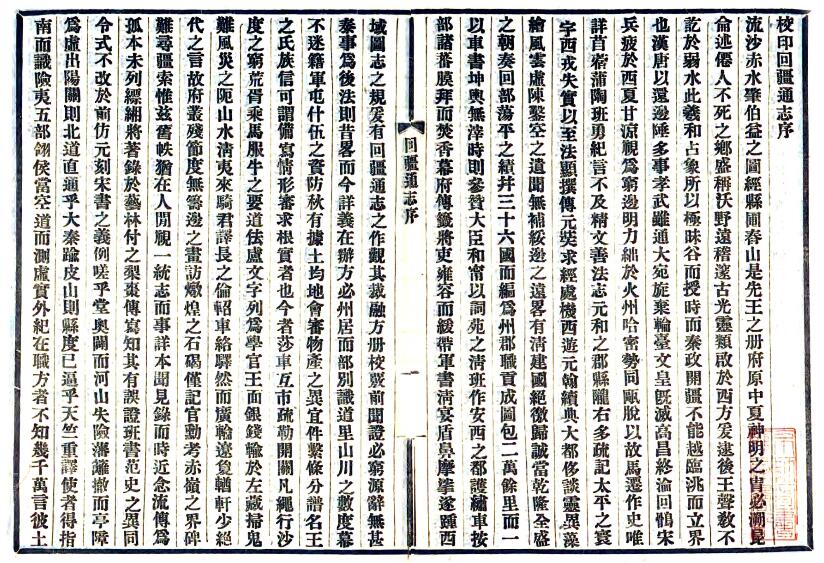 校印回疆通志序
流沙赤水肇伯益之圖經縣圃春山是先王之册府原中夏神明之胄必溯昆
侖述僊人不死之鄉盛稱沃野遠稽邃古光靈類啟於西方爰逮後王聲敎不
訖於弱水此羲和占象所以極昧谷而授時而秦政開疆不能越臨洮而立界
也漢唐以還邊陲多事孝武雖通大宛旋棄輪臺文皇旣滅高昌終淪回鶻宋
兵疲於西夏甘涼視爲窮邊明力絀於火州哈密勢同甌脫以故馬遷作史唯
詳苜蓿蒲陶班勇紀言不及精文善法志元和之郡縣隴右多疏記太平之寰
字西戎失實以至法顯撰傳元奘求經處機西遊元翰續典大都侈談靈異藻
繪風雲虛陳鑿空之遺聞無補綏邊之遠畧有淸建國絕徼歸誠當乾隆全盛
之朝奏回部蕩平之績幷三十六國而編爲州郡職貢成圖包二萬餘里而一
以車書坤輿無滓時則參贊大臣和甯以詞苑之淸班作安西之都護繡車按
部諸蕃膜拜而焚香幕府傳籤將吏雍容而緩帶軍書淸宴盾鼻摩挲遂踵西
回疆通志序
一
域圖志之規爰有回疆通志之作觀其裁融方册校覈前聞證必窮源辭無甚
秦事爲後法則昔畧而今詳義在辦方必州居而部別識道里山川之數度幕
不迷籍軍屯什伍之實防秋有據土均地會審物產之異宜件繫條分譜名王
之氏族信可謂備寫情形審求根實者也今者莎車互市疏勒開關凡繩行沙
度之窮荒胥乘馬服牛之要道佉盧文字列爲學官王面銀錢輸於左藏掃鬼
難風災之阨山水淸夷來騎君譯長之倫軺車絡驛然而廣輪遼敻輶軒少絕
代之言故府叢殘節度無籌邊之畫訪燉煌之石碣僅記官勳考赤嶺之界碑
難尋疆索惟茲舊帙猶在人間覩一統志而事詳本聞見錄而時近念流傳爲
孤本未列縹緗將著錄於藝林付之梨棗傳寫知其有誤證班書范史之異同
令式不改於前仿元刻宋書之義例嗟乎堂奧闢而河山失險藩籬撤而亭障
爲虛出陽關則北道直通乎大秦踰皮山則縣度已逼乎天竺重譯使者得指
南而識險夷五部翎侯當空道而測虛實外紀在職方者不知幾千萬言彼土